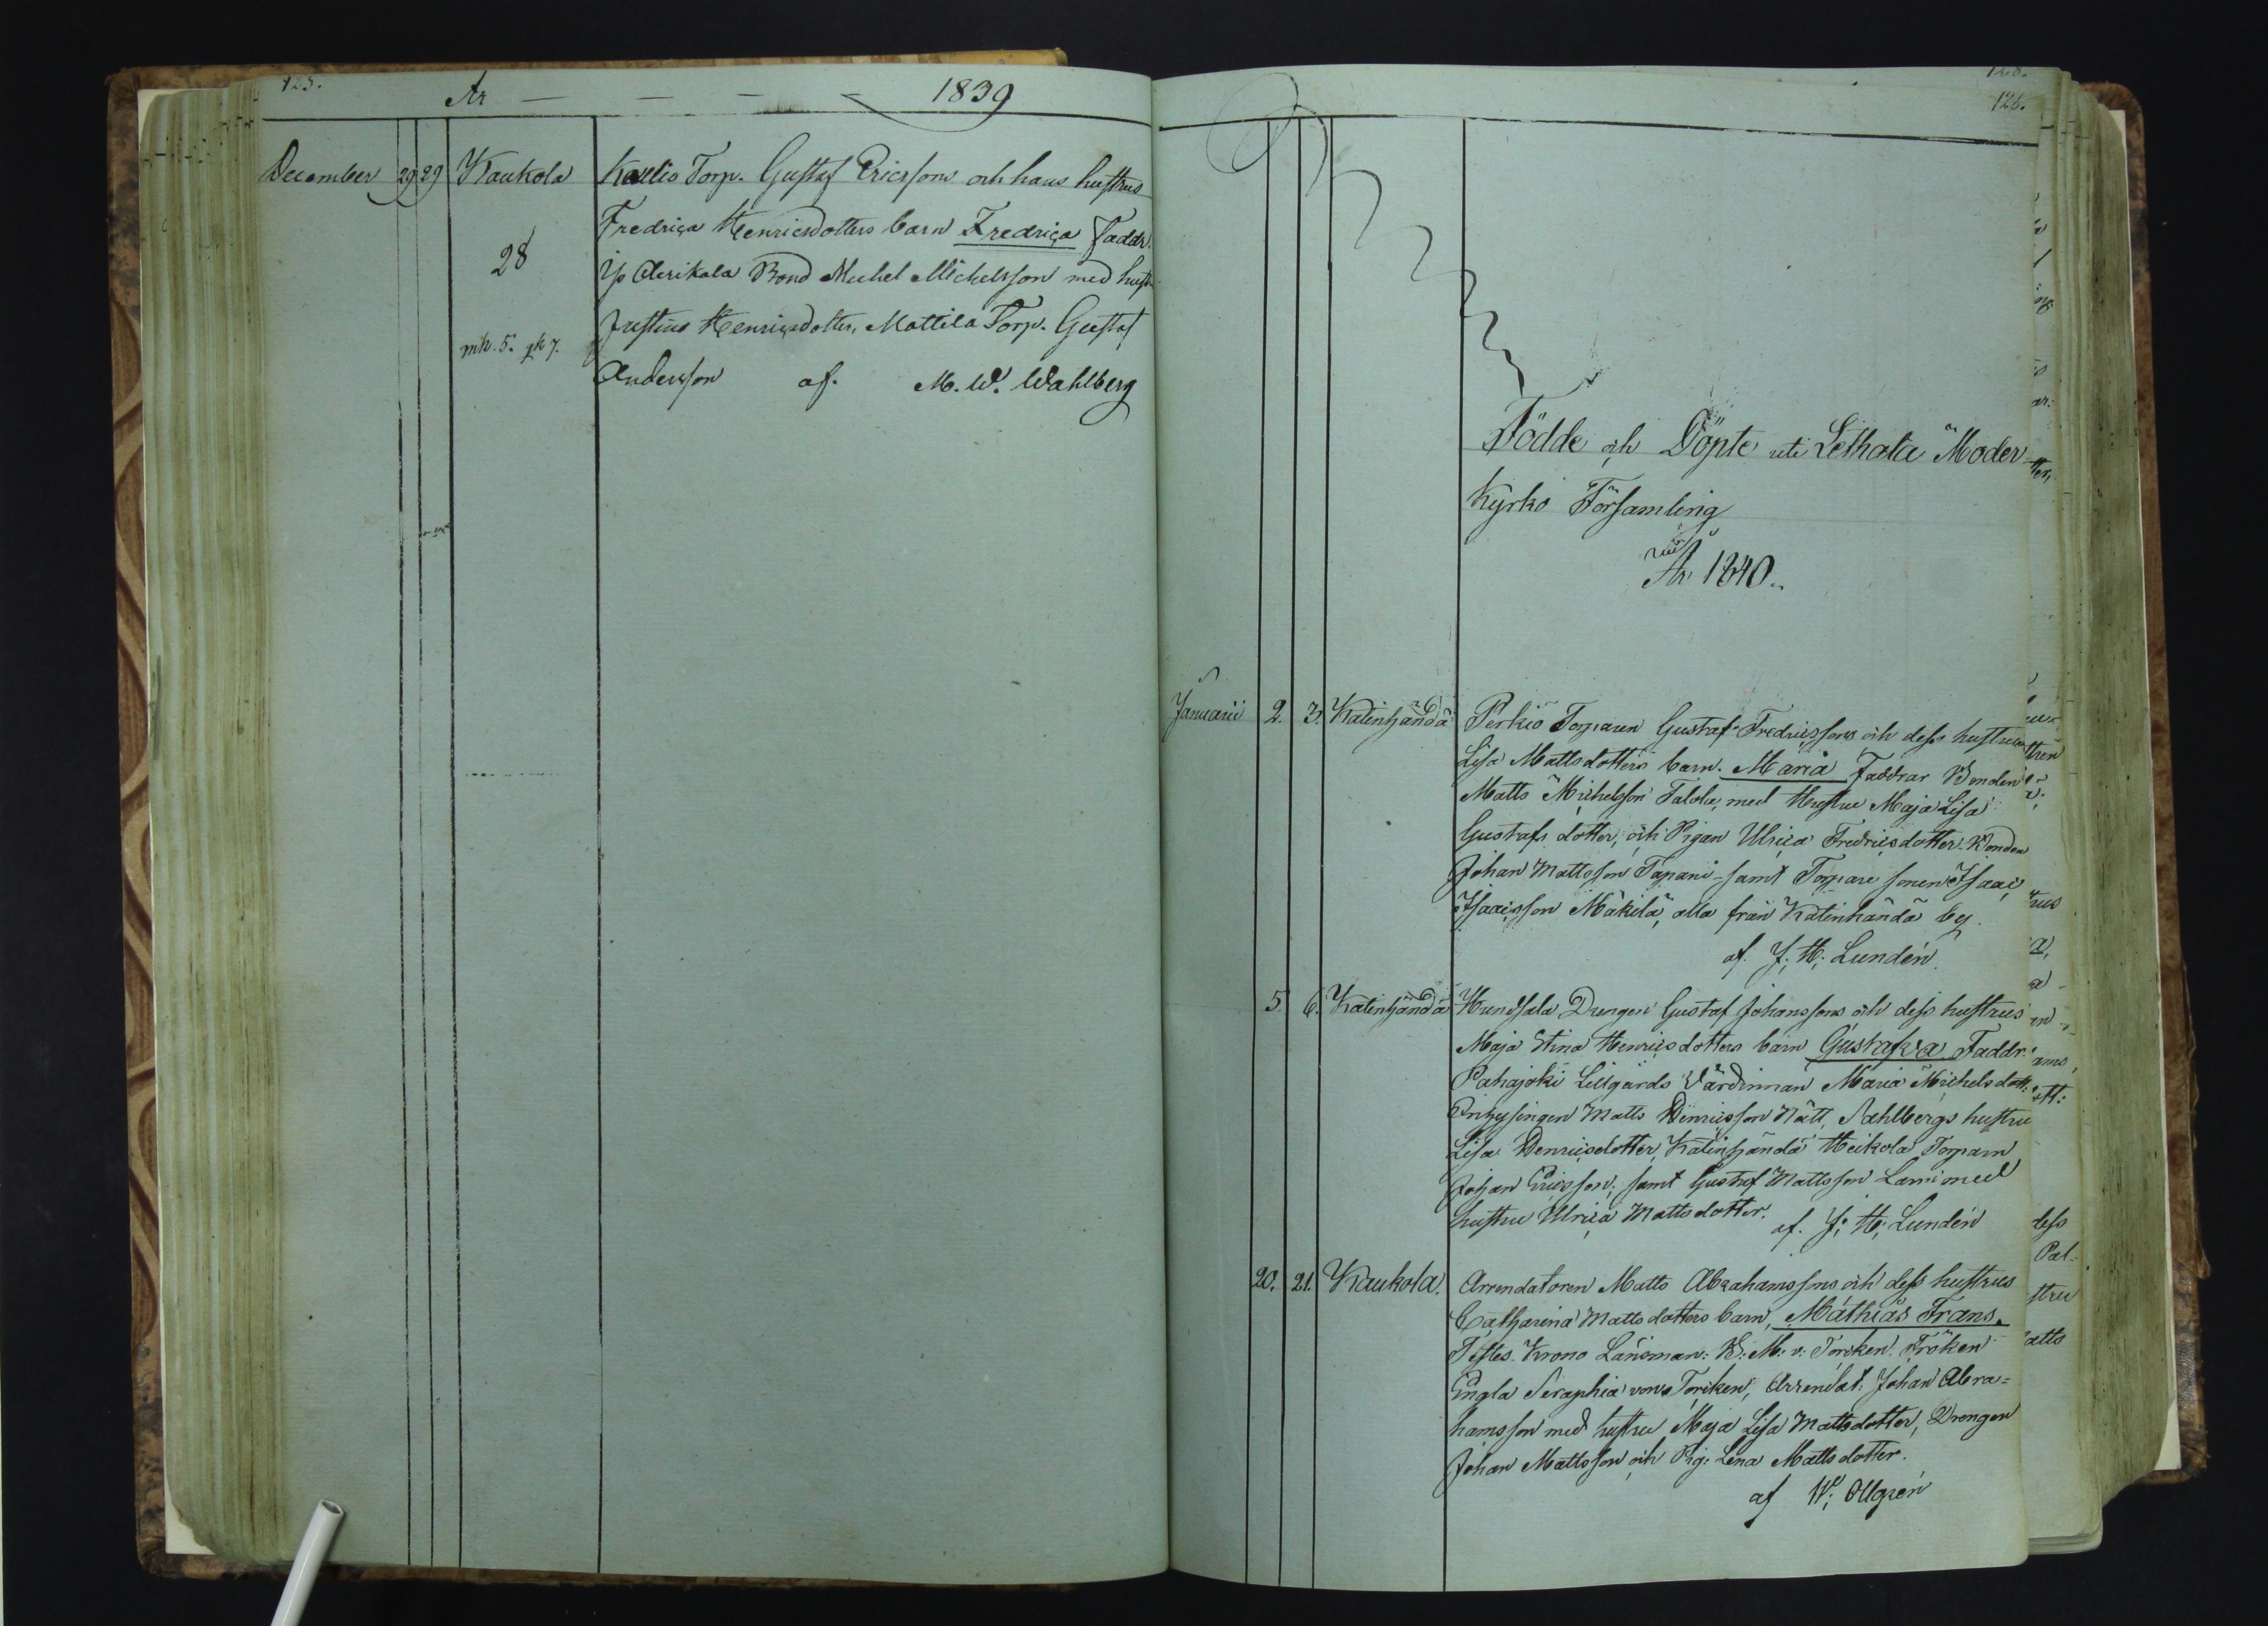 125.
År — — — — 1839
December 29 29 Kaukola Kallio Torp. Gustaf Ericssons och hans hustrus
Fredrica Henricsdotters barn Fredrica Faddr.
28
Yp Äerikala Bond Michel Michelsson med hust.
Justina Henricsdotter, Mattila Torp. Gustaf
mk. 5. qk 7.
Andersson af. M. W. Wahlberg
126.
Födde och Döpte uti Lethala Moder
Kyrko Församling
År 1840.
Januarii 2. 3. Katinhändä Perkiö Torparen Gustaf Fredricssons och dess hustrus
Lisa Mattsdotters barn. Maria Faddrar Bonden
Matts Michelsson Talola, med Hustru Maja Lisa
Gustafs dotter, och Pigan Ulrica Fredricsdotter. Bonden
Johan Mattsson Tapani - samt Torpare sonen Isaac
Isaacsson Mäkilä, alla från Katinhändä by.
af. J. H. Lundén
5. 6. Katinhändä Hundsala Drengen Gustaf Johanssons och dess hustrus
Maja Stina Henricsdotters barn Gustafva Faddr.
Pahajoki Lillgårds Värdinnan Maria Michelsdott:
Matts Henricsson Nätt, Sahlbergs hustru
Lisa Henricsdotter, Katinhändä Heikola Torparn
Johan Ericsson, samt Gustaf Mattsson Lami med
hustru Ulrica Mattsdotter. af. J. H. Lundén
20. 21. Kaukola. Arrendatoren Matts Abrahamssons och dess hustrus
Catharina Mattsdotters barn, Mathias Frans.
Testes. Krono Länsman: B: M: v: Törcken. Fröken
Engla Seraphia von Törcken, Arrendat: Johan Abra=
hamsson med hustru Maja Lisa Mattsdotter, Drengen
Johan Mattsson och Pig: Lena Mattsdotter.
af W. Ollgrén